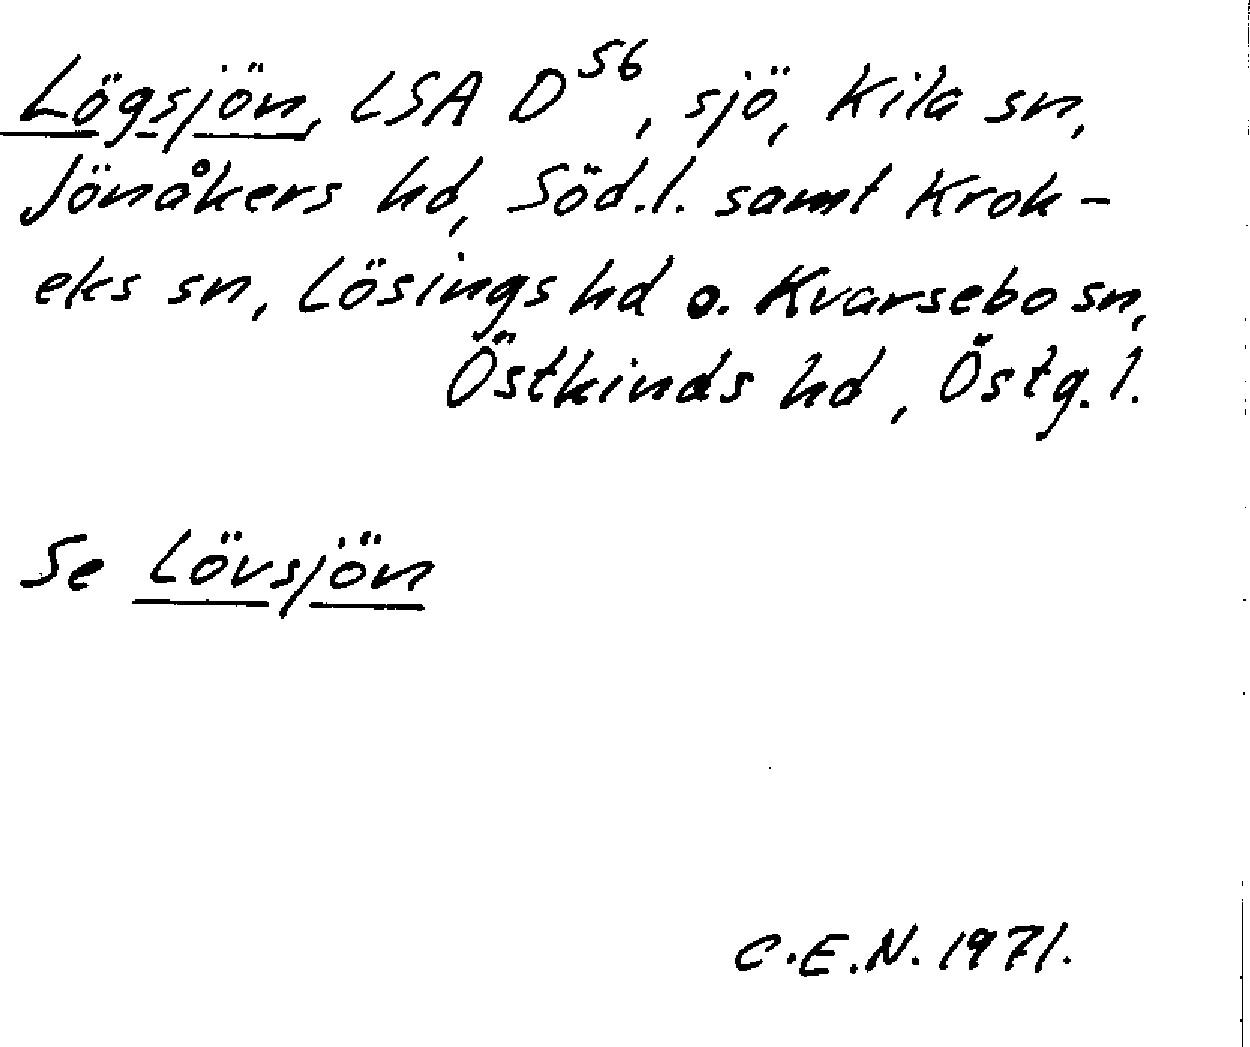 Lögsjön, LSA D56, sjö, Kila sn,
Jönåkers hd, Söd.l. samt Krok-
eks sn, Lösings hd o. Kvarsebo sn,
Östkinds hd, Östg.l.
Se Lövsjön
C.E.N. 1971.